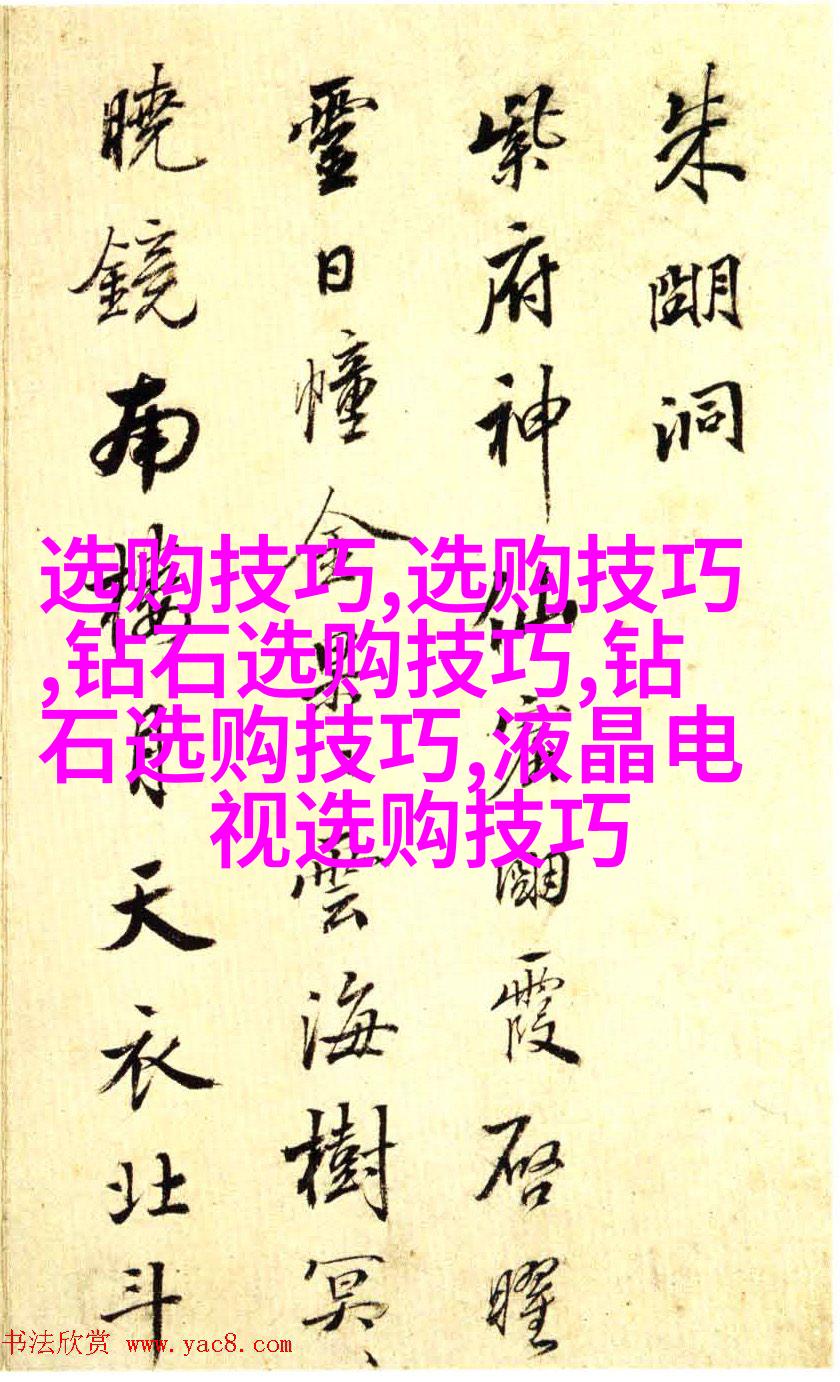 朱朙洞
紫府神仙朙霞啓曜
靈日幢金雲海樹冥、
曉鏡南樓月天衣北斗
选购技巧,选购技巧
,钻石选购技巧,钻
石选购技巧,液晶电
视选购技巧
书法欣赏 www.yac8.com